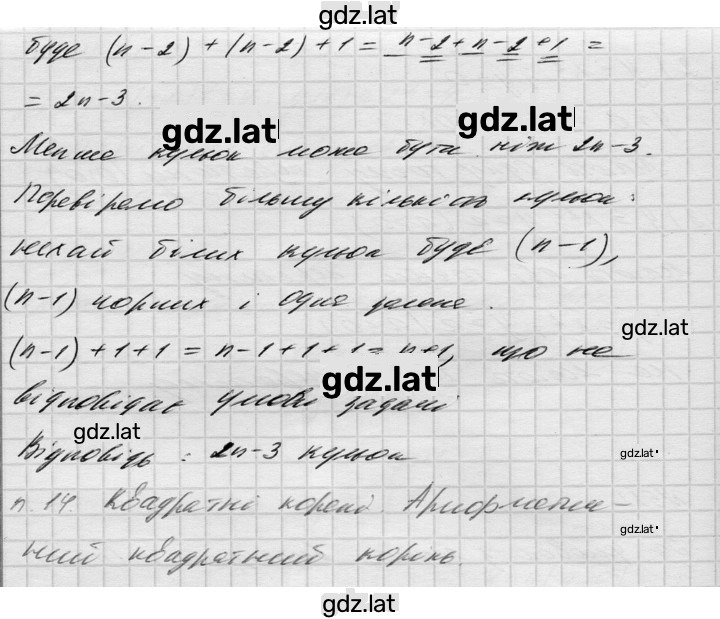 gdz.lat
буде (n-2)+(n-2)+1 = n-2+n-2+1 =
= 2n-3.
gdz.lat gdz.lat
Менше кульок може бути ніж 2n-3.
Перевіремо більшу кількість кульок:
нехай білих кульок буде (n-1),
(n-1) чорних і одна зелена.
gdz.lat
(n-1)+1+1 = n-1+1+1 = n+1, що не
gdz.lat
відповідає умові задачі
gdz.lat
Відповідь: 2n-3 кульок
gdz.lat
п. 14. Квадратні корені. Арифметич-
gdz.lat
ний квадратний корінь.
gdz.lat